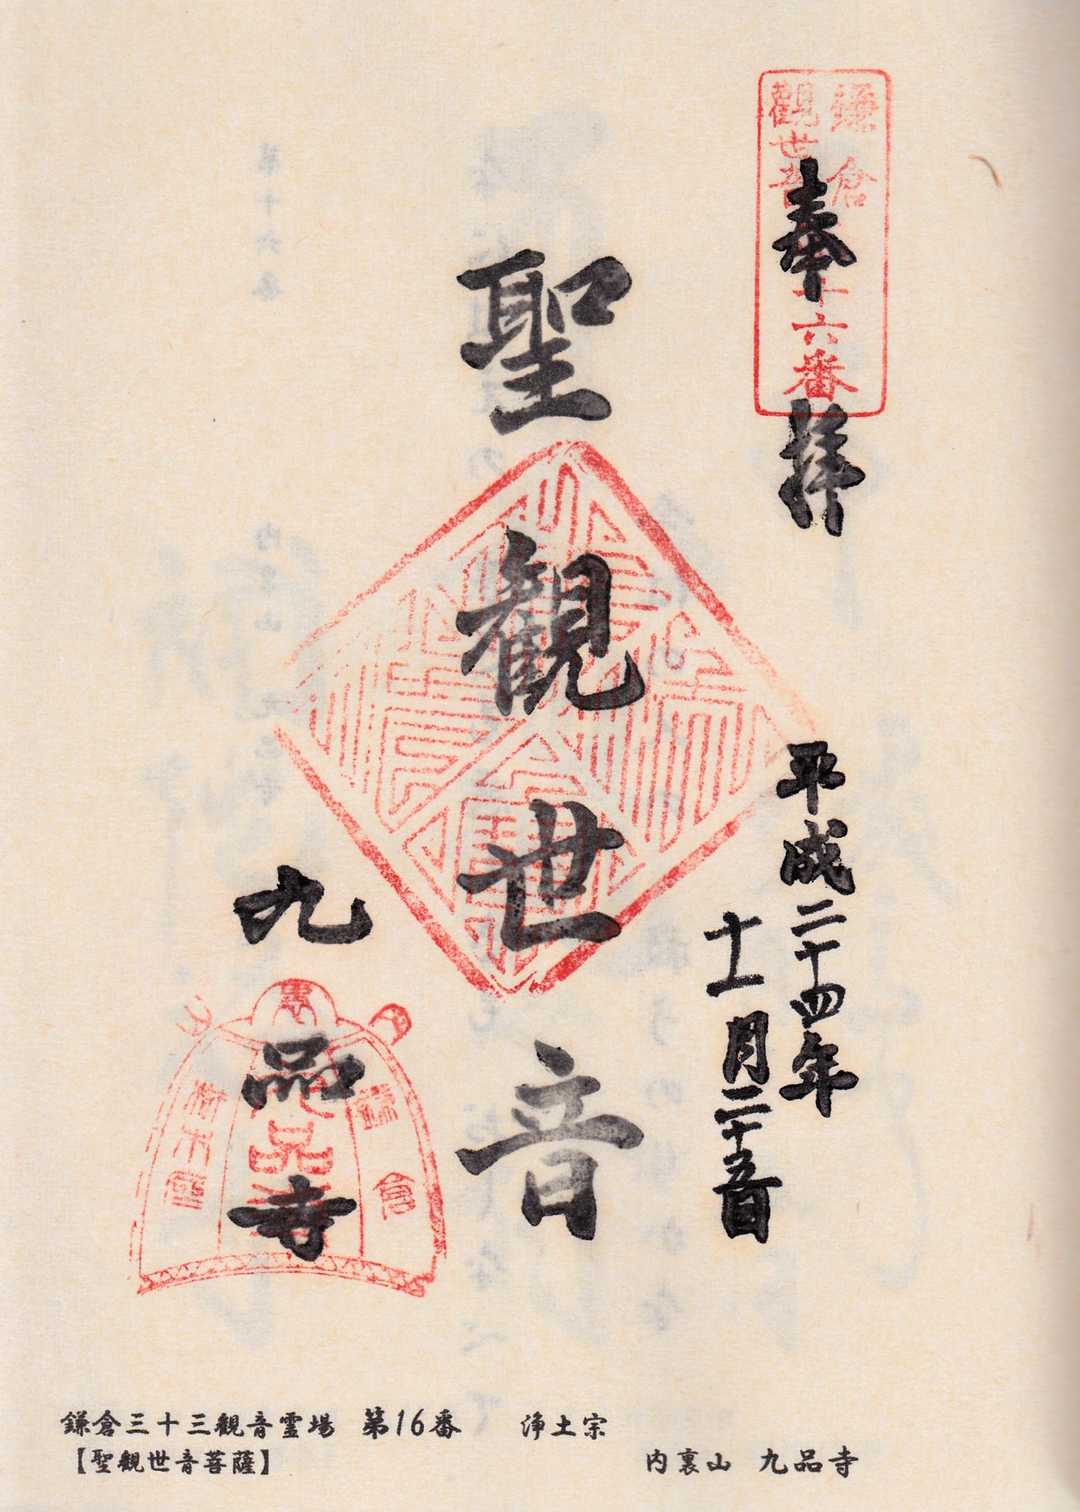 鎌倉
観世音
十六番
奉拝
平成二十四年
十一月二十五日
聖観世音
九品寺
鎌倉三十三観音霊場 第16番 浄土宗
【聖観世音菩薩】 内裏山 九品寺